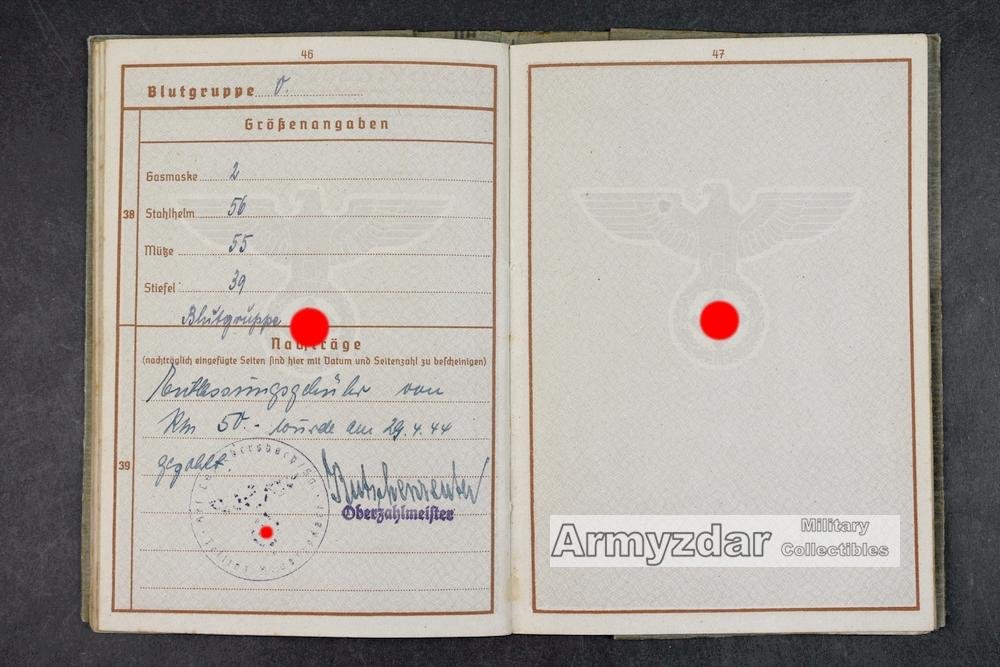 46
Blutgruppe 0.
Größenangaben
Gasmaske 2
38
Stahlhelm 56
Mütze 55
Stiefel 39
Blutgruppe
Nachträge
(nachträglich eingefügte Seiten sind hier mit Datum und Seitenzahl zu bescheinigen)
Entlassungsgebühr von
RM 50.- wurde am 29.4.44
39
gezahlt.
Oberzahlmeister
47
Armyzdar Military
Collectibles